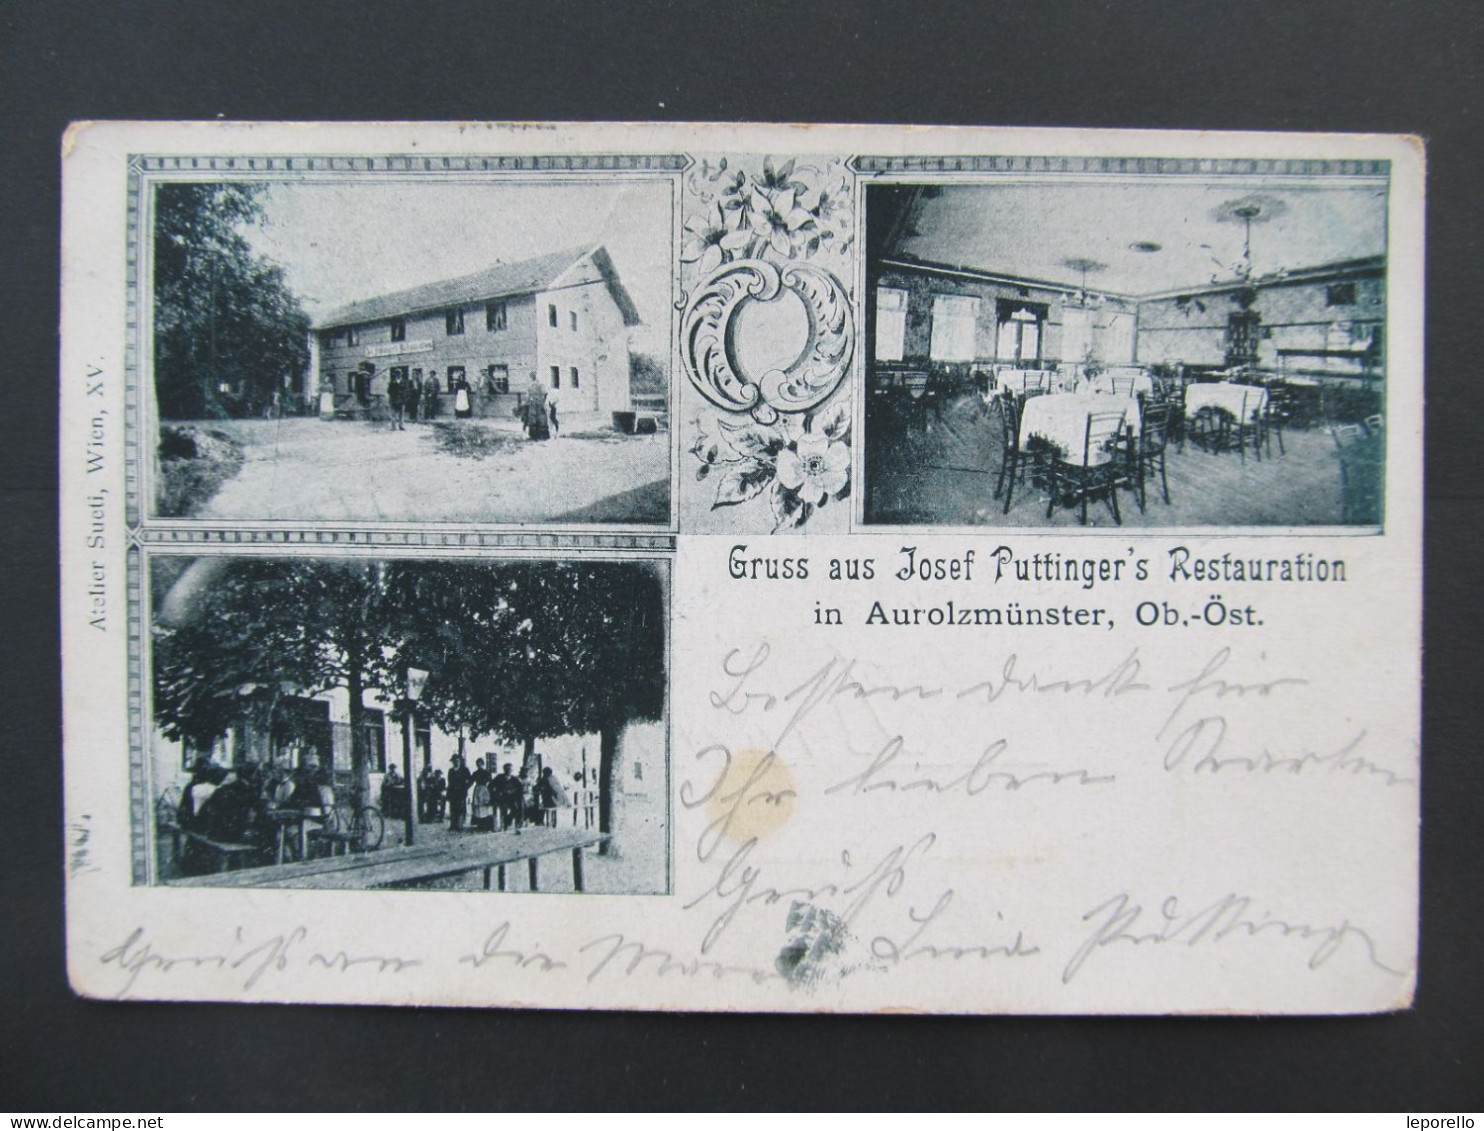 Atelier Sueti, Wien, XV.
Gruss aus Josef Puttinger's Restauration
in Aurolzmünster, Ob.-Öst.
Besten dank für
Ihr lieben Karten
Gruß
Puttinger
Gruß an die
www.delcampe.net
leporello